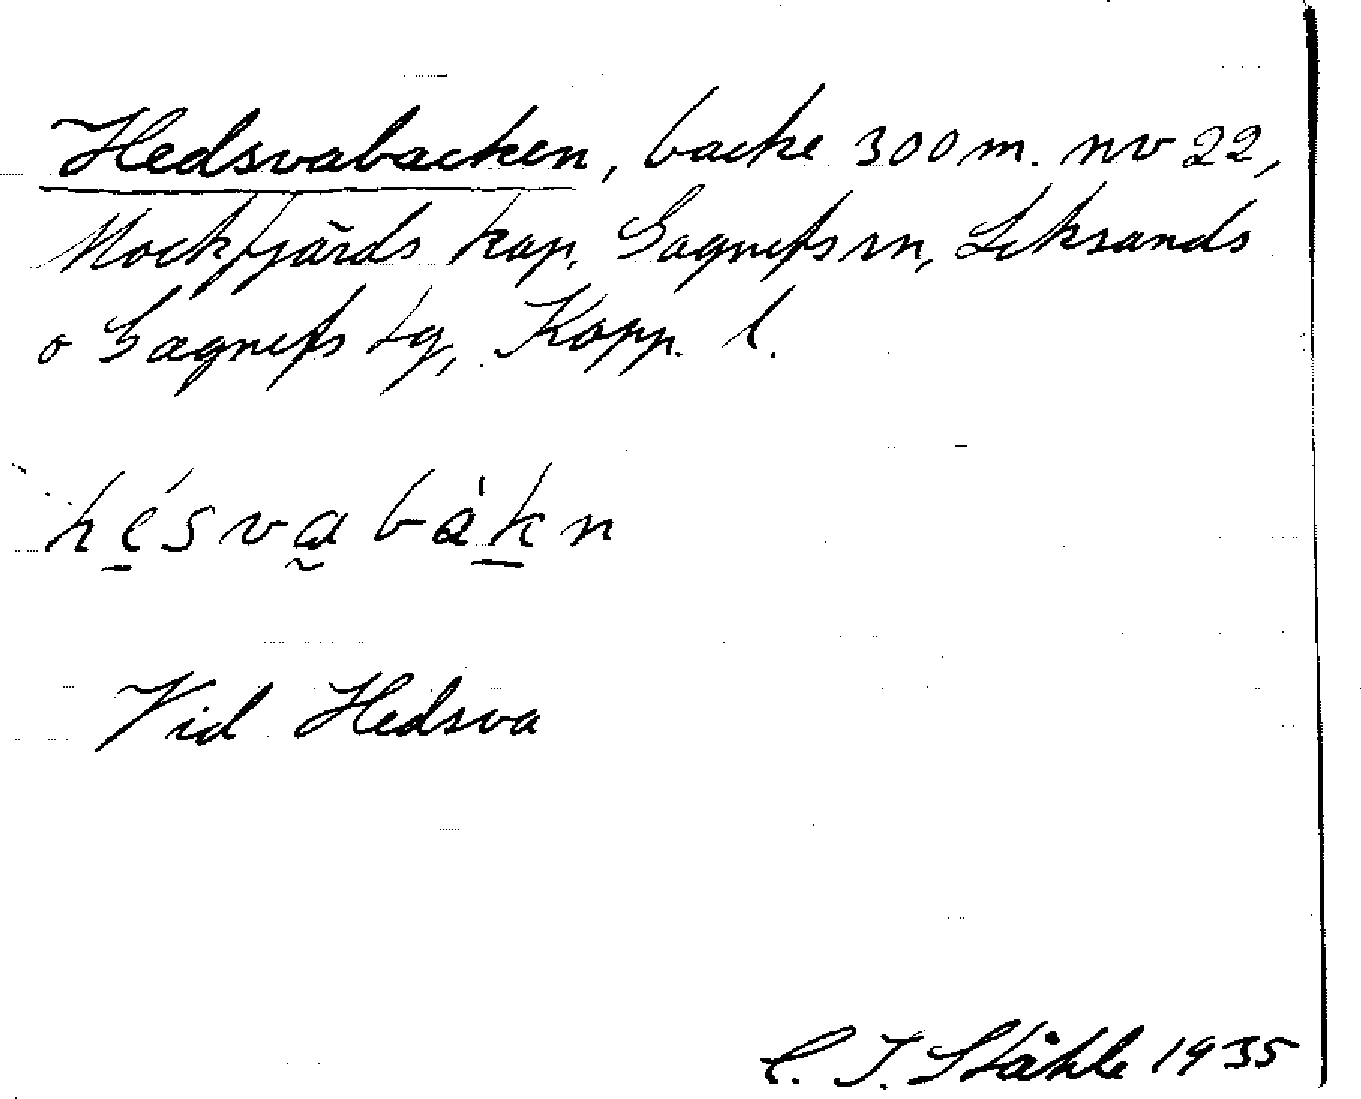 Hedsvabacken, backe 300 m. nv 22,
Mockfjärds kap. Gagnefs sn, Leksands
o Gagnefs tg, Kopp. l.
hésvabàkn
Vid Hedsva
C. I. Ståhle 1935